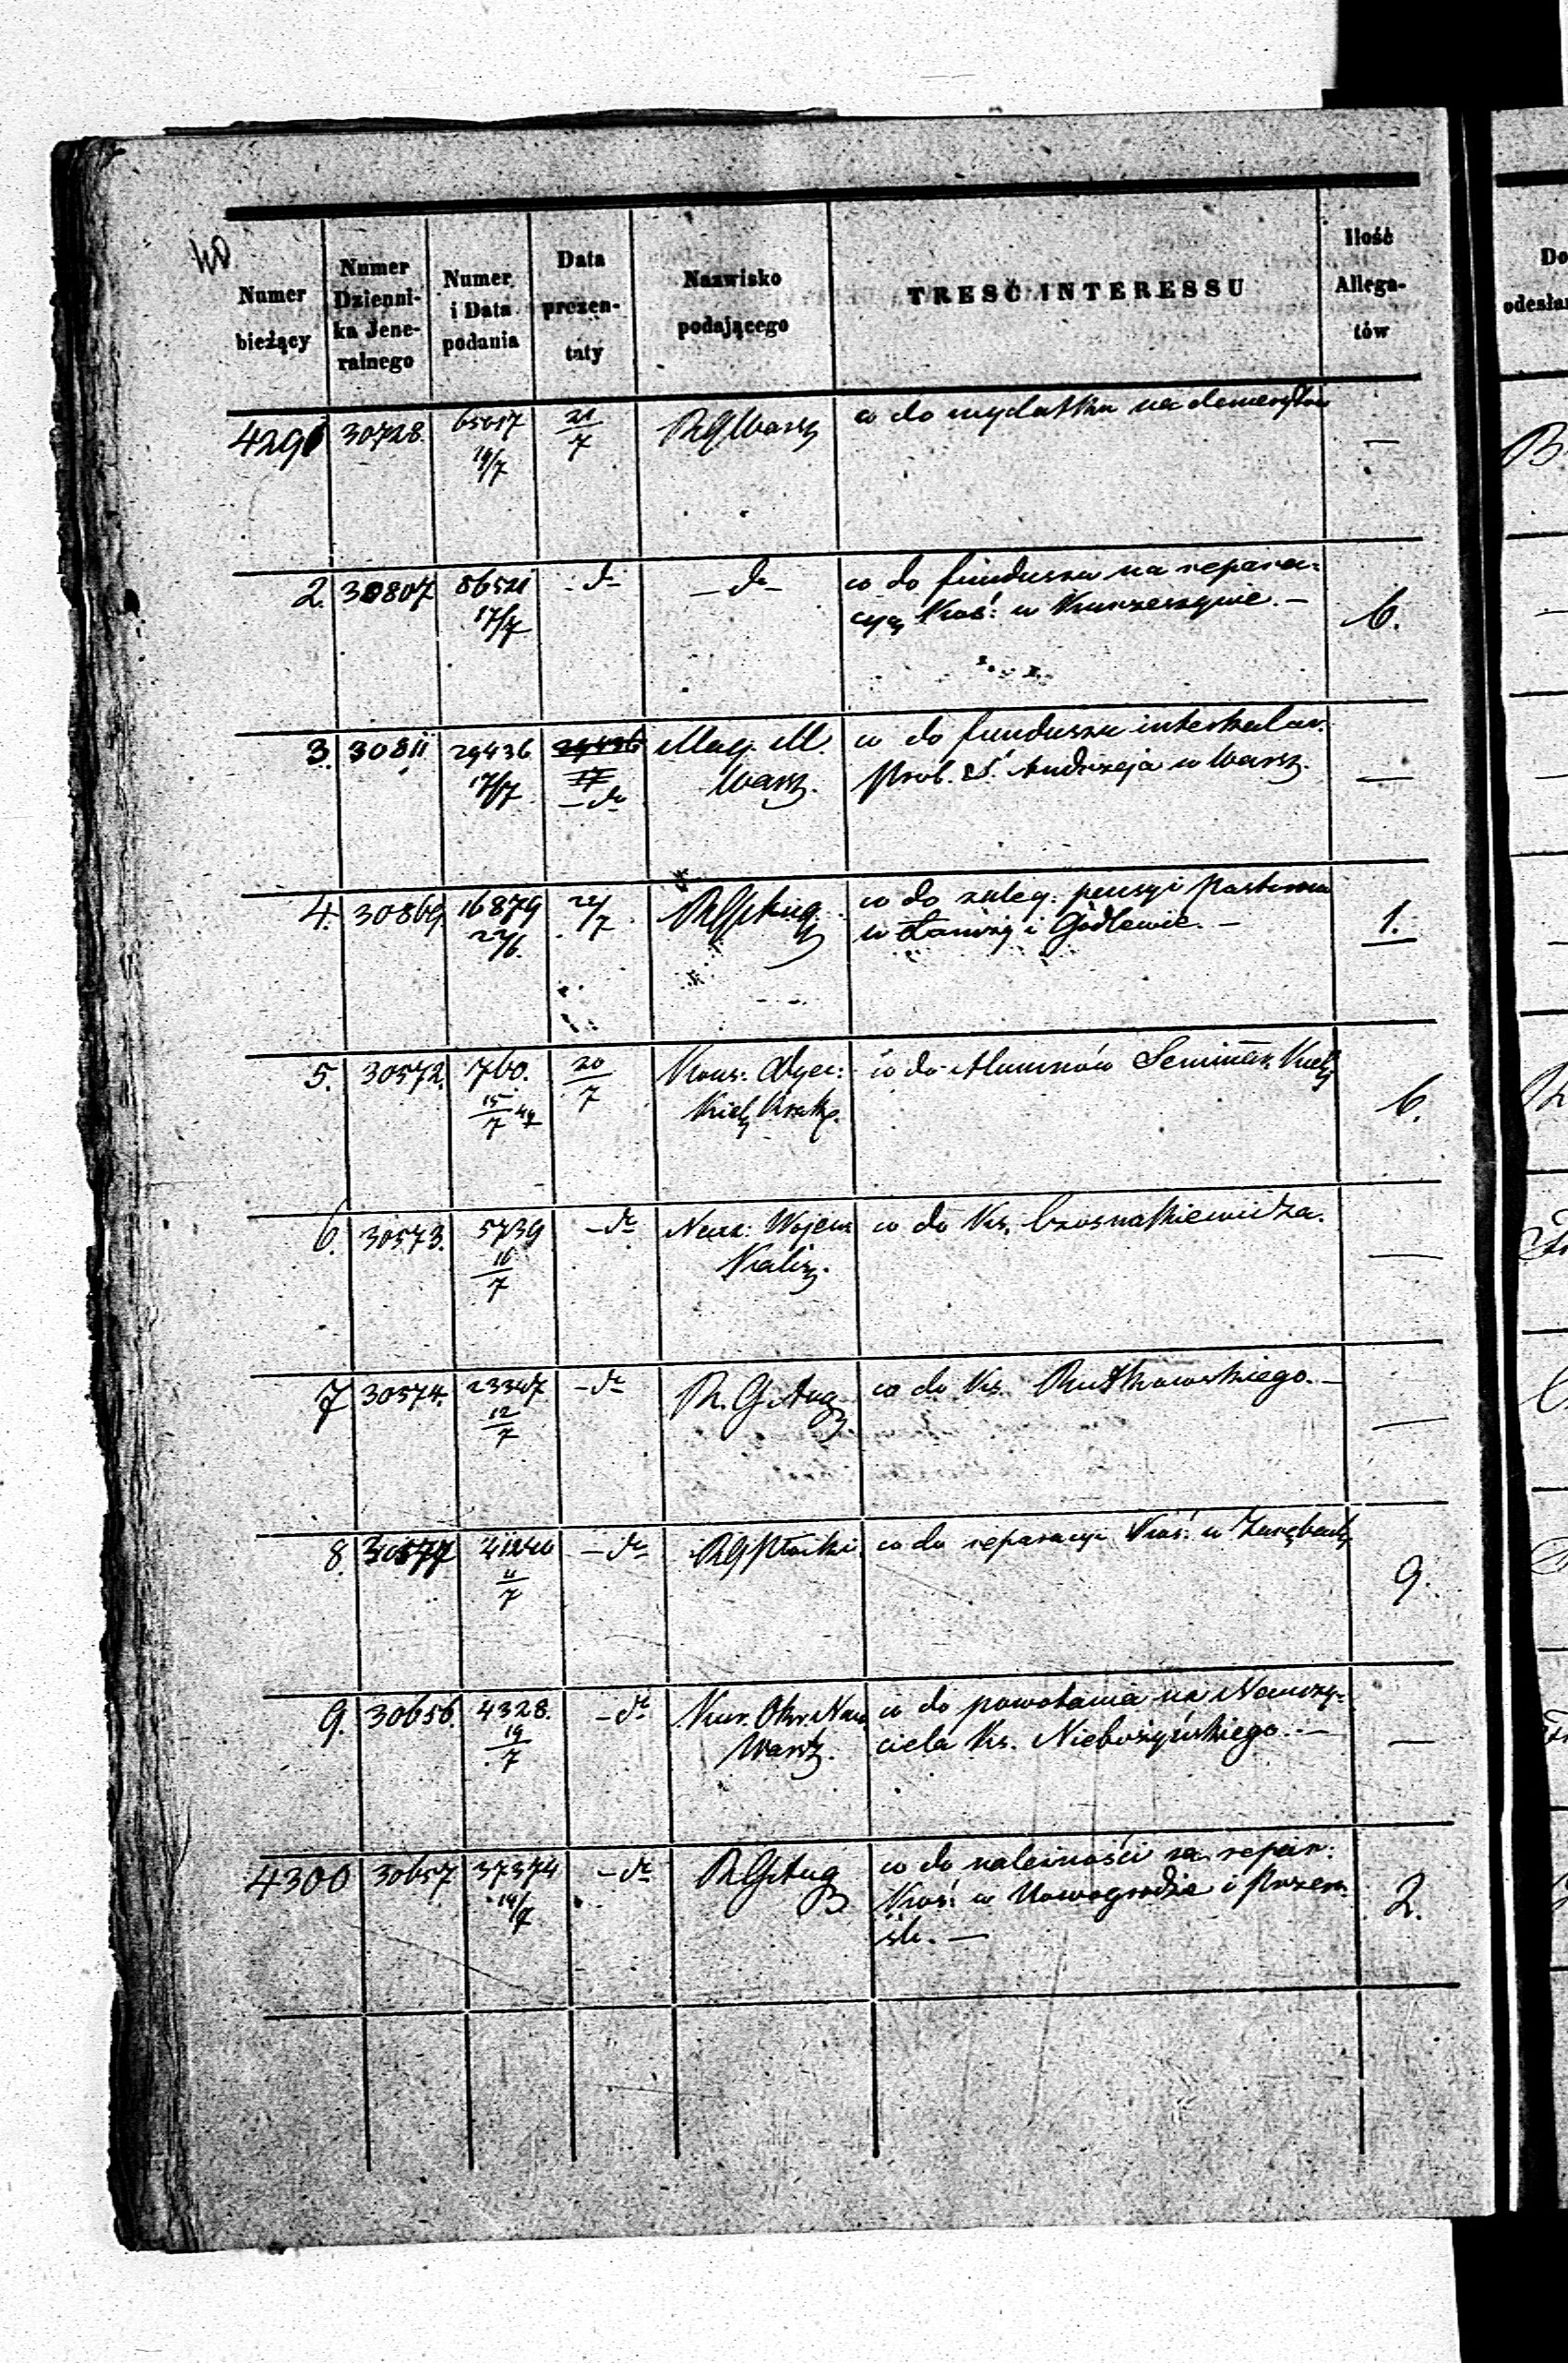 40
Numer bieżący
Numer Dzienni-ka Jene-ralnego
Numer i Data podania
Data prezen-taty
Nazwisko podającego
TREŚĆ INTERESSU
Ilość Allega-tów
4291 30728. 65017 19/7 21/7 RGWarsz co do wydatku na demerytów —
2. 30807 86521 17/7 - do - — do — co do funduszu na repara=
cyą Koś: w Kurzeszynie. — 6.
3. 30811 29436 17/7 29436 17 — do Mag. M. co do funduszu interkalar.
Warsz. Prob. Sś. Andrzeja w Warsz. —
4. 30869. 16879 22/6. 21/7 RGAug. co do zaleg. pensyi Pastora
w Łomży i Godlewie. — 1.
5. 30572. 760. 15/7 47 20/7 Kons. Dyec: co do Alumnów Seminar. Kiel.
Kiel. Krak. 6.
6. 30573. 5739 16/7 — do Nacz: Wojen co do Ks.
Kalisz. —
7 30574. 23347 12/7 — do R. G. Aug co do Ks. Rutkowskiego. — —
8. 30577 41240 11/7 — do RGPłocki. co do reparacyi Koś: w Zarębach 9.
9. 30656. 4328. 19/7 — do Kur. Okr. Nau co do powołania na Nauczy=
Warsz. ciela Ks. Nieboszyńskiego. — —
4300 30657 37374 14/7 — do RGAug co do należności za repar:
Koś: w Nowogrodzie i Przero=
śli. — 2.
Do
odesłan